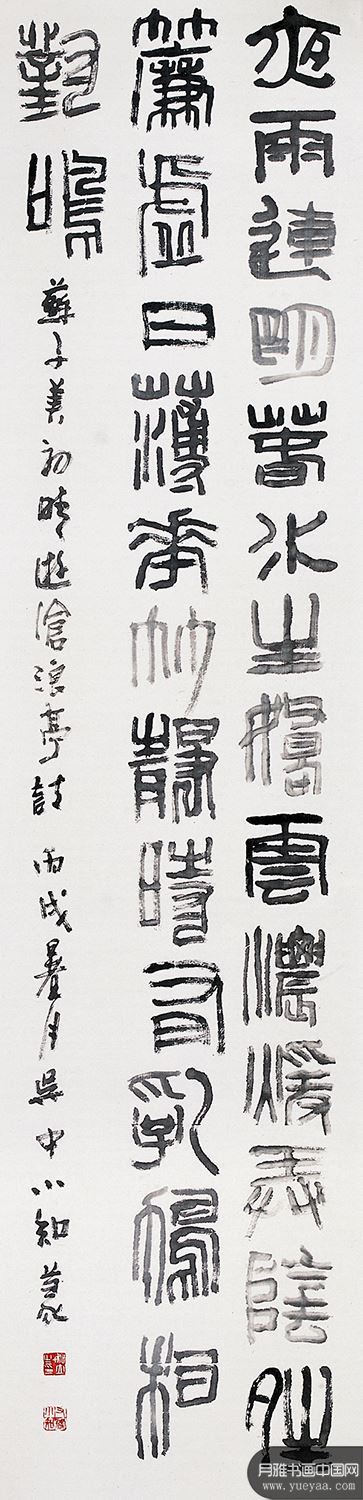 夜雨連明春水生嬌雲濃暖弄陰晴
簾虛日薄花竹靜時有乳鳩相
對鳴 蘇子美初晴遊滄浪亭詩 丙戌暑月吳中小知篆
月雅书画中国网
www.yueyaa.com